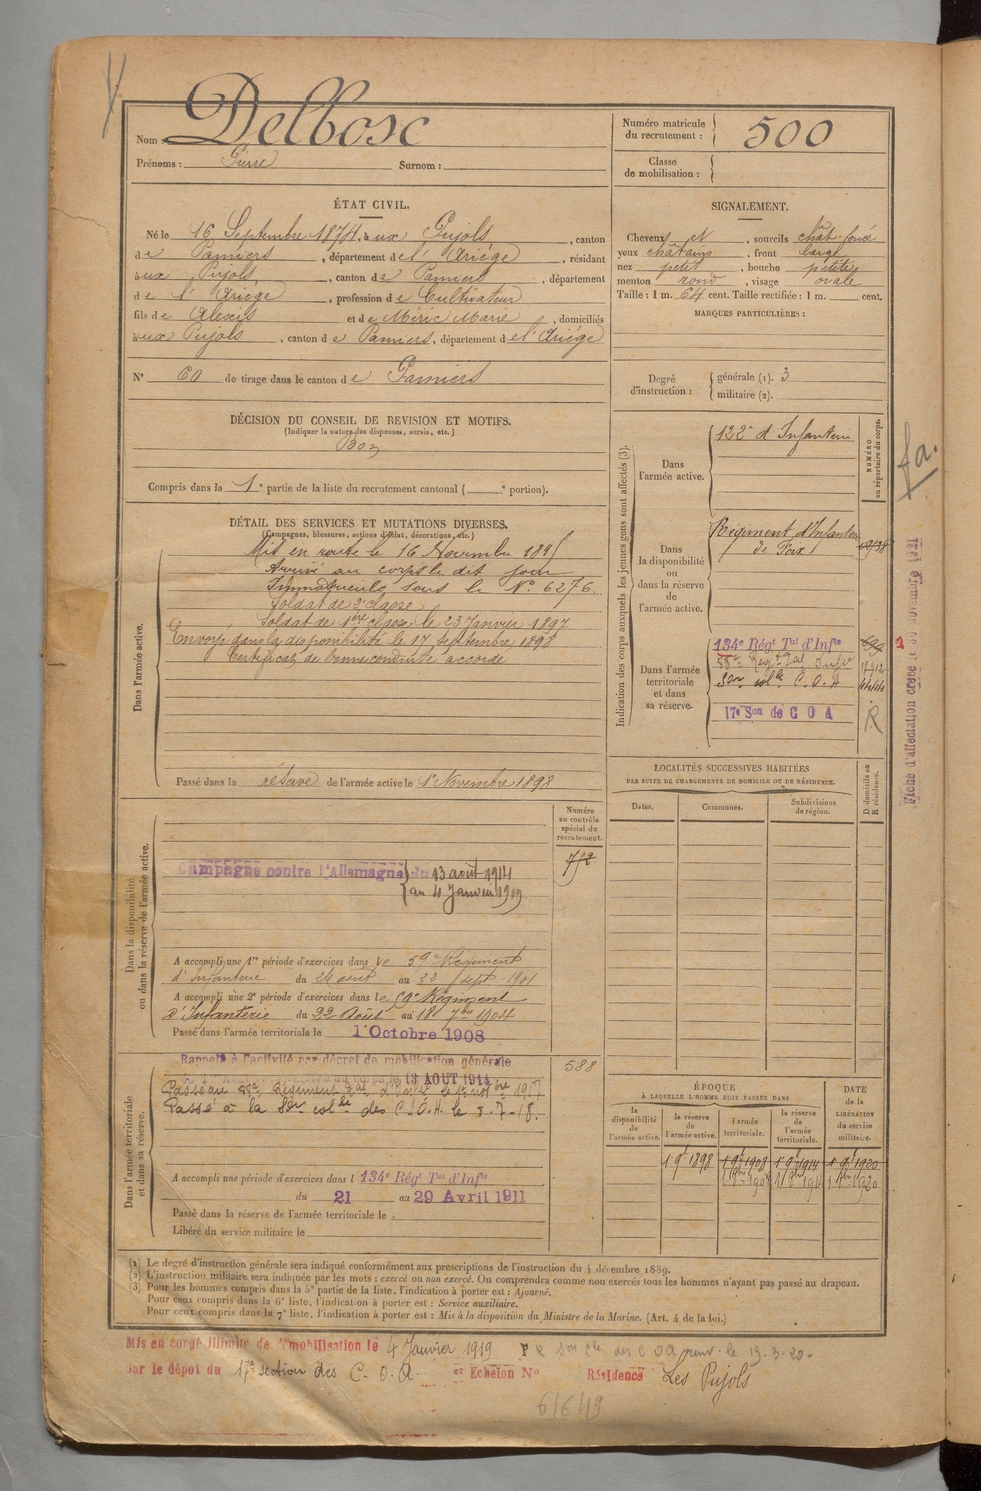 Nom Delbosc
Prénoms : Pierre Surnom :
Numéro matricule du recrutement : 500
Classe de mobilisation :
ÉTAT CIVIL.
Né le 16 Septembre 1874, à ux Pujols, canton
de Pamiers, département de l'Ariège, résidant
à ux Pujols, canton de Pamiers, département
de l'Ariège, profession de Cultivateur
fils de Alexis et de Méric Marie, domiciliés
à ux Pujols, canton de Pamiers, département de l'Ariège
N° 60 de tirage dans le canton de Pamiers
SIGNALEMENT.
Cheveux et, sourcils chât. foncé
yeux châtains, front large
nez petit, bouche petite
menton rond, visage ovale
Taille : 1 m. 64 cent. Taille rectifiée : 1 m. cent.
MARQUES PARTICULIÈRES :
Degré d'instruction : générale (1). 3
militaire (2).
DÉCISION DU CONSEIL DE REVISION ET MOTIFS.
(Indiquer la nature des dispenses, sursis, etc.)
Bon
Compris dans la 1e partie de la liste du recrutement cantonal ( e portion).
DÉTAIL DES SERVICES ET MUTATIONS DIVERSES.
(Campagnes, blessures, actions d'éclat, décorations, etc.)
Dans l'armée active.
Mis en route le 16 Novembre 1895
Arrivé au corps le dit jour
Immatriculé sous le N° 6276.
Soldat de 2e classe
Soldat de 1ère classe le 23 Janvier 1897
Envoyé dans la disponibilité le 17 Septembre 1898
Certificat de bonne conduite accordé
Passé dans la réserve de l'armée active le 1er Novembre 1898
Indication des corps auxquels les jeunes gens sont affectés (3).
NUMÉRO au répertoire du corps.
Dans l'armée active.
122e d'Infanterie
Dans la disponibilité ou dans la réserve de l'armée active.
Régiment d'Infanterie
de Foix
Dans l'armée territoriale et dans sa réserve.
134e Régt Tal d'Infie
88e Régt Tal Infie
Son C.O.A
17e Son de C O A
R
fa.
Fiche d'affectation créée le 30 novembre 1921
LOCALITÉS SUCCESSIVES HABITÉES
PAR SUITE DE CHANGEMENTS DE DOMICILE OU DE RÉSIDENCE.
D domicile ou R résidence.
Dates. Communes. Subdivisions de région.
Dans la disponibilité ou dans la réserve de l'armée active.
Numéro au contrôle spécial du recrutement.
752
Campagne contre l'Allemagne du 13 août 1914
au 4 Janvier 1919.
A accompli une 1re période d'exercices dans le 59e Régiment
d'Infanterie du 26 août au 22 sept. 1901
A accompli une 2e période d'exercices dans le 59e Régiment
d'Infanterie du 22 Août au 18 7bre 1904
Passé dans l'armée territoriale le 1 Octobre 1908
Dans l'armée territoriale et dans sa réserve.
588
Rappelé à l'activité par décret de mobilisation générale
arrivé au corps le 13 AOUT 1914
Passé au 88e Régiment Tal d'Inf le 1er 9bre 1917
Passé à la des C.O.A. le 8.7.18.
A accompli une période d'exercices dans l 134e Régt Tal d'Infie
du 21 au 29 Avril 1911
Passé dans la réserve de l'armée territoriale le
Libéré du service militaire le
ÉPOQUE
À LAQUELLE L'HOMME DOIT PASSER DANS
DATE de la LIBÉRATION du service militaire.
la disponibilité de l'armée active. la réserve de l'armée active. l'armée territoriale. la réserve de l'armée territoriale.
1 9bre 1898 1 9bre 1908 1 9bre 1914 1 9bre 1920
(1) Le degré d'instruction générale sera indiqué conformément aux prescriptions de l'instruction du 4 décembre 1889.
(2) L'instruction militaire sera indiquée par les mots : exercé ou non exercé. On comprendra comme non exercés tous les hommes n'ayant pas passé au drapeau.
(3) Pour les hommes compris dans la 5e partie de la liste, l'indication à porter est : Ajourné.
Pour ceux compris dans la 6e liste, l'indication à porter est : Service auxiliaire.
Pour ceux compris dans la 7e liste, l'indication à porter est : Mis à la disposition du Ministre de la Marine. (Art. 4 de la loi.)
Mis en congé illimité de démobilisation le 4 Janvier 1919
par le dépôt du 17e section des C.O.A. er Echelon No Résidence Les Pujols
des C O A le 19.3.20.
6/6 49